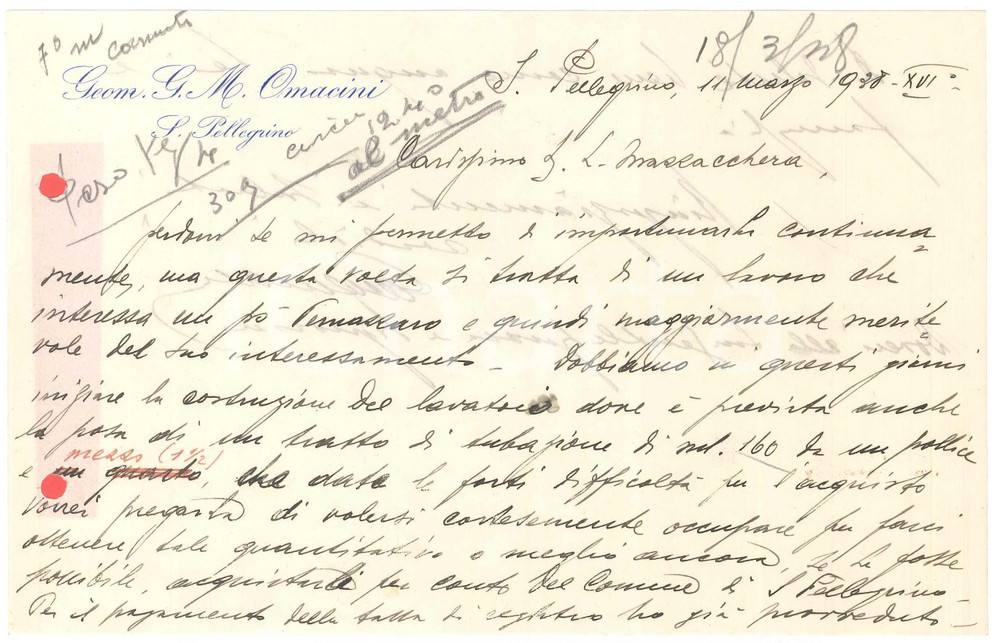 18/3/38
7° m
Geom. G. M. Omacini
S. Pellegrino
S. Pellegrino, 11 marzo 1938-XVI°
Peso Kg/m
309
al metro
Carissimo S. L. Mazzacchera,
perdoni se mi permetto di importunarla continua=
mente, ma questa volta si tratta di un lavoro che
interessa un pò Vemazzaro e quindi maggiormente merite=
vole del suo interessamento - Dobbiamo in questi giorni
iniziare la costruzione del lavatoio dove è prevista anche
la posa di un tratto di tubazione di ml. 160 da un pollice
mezzo (1 1/2)
e un quarto, che date le forti difficoltà per l'acquisto
vorrei pregarla di volersi cortesemente occupare per farci
ottenere tale quantitativo o meglio ancora, se le fosse
possibile, acquistarli per conto del Comune di S Pellegrino -
Per il pagamento della tassa di registro ho già provveduto -